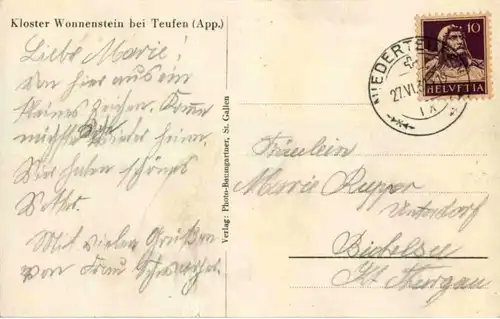 Kloster Wonnenstein bei Teufen (App.)
Liebe Marie!
Von hier aus ein
kleines Zeichen. Komme
nächste wieder heim.
Wir haben schönes
Wetter.
Mit vielen Grüßen
von Frau
Verlag: Photo-Baumgartner, St. Gallen
10
HELVETIA
NIEDERTEUFEN
27.VI.
IX
Fräulein
Marie Rupper
Unterdorf
Bichelsee
Kt. Thurgau